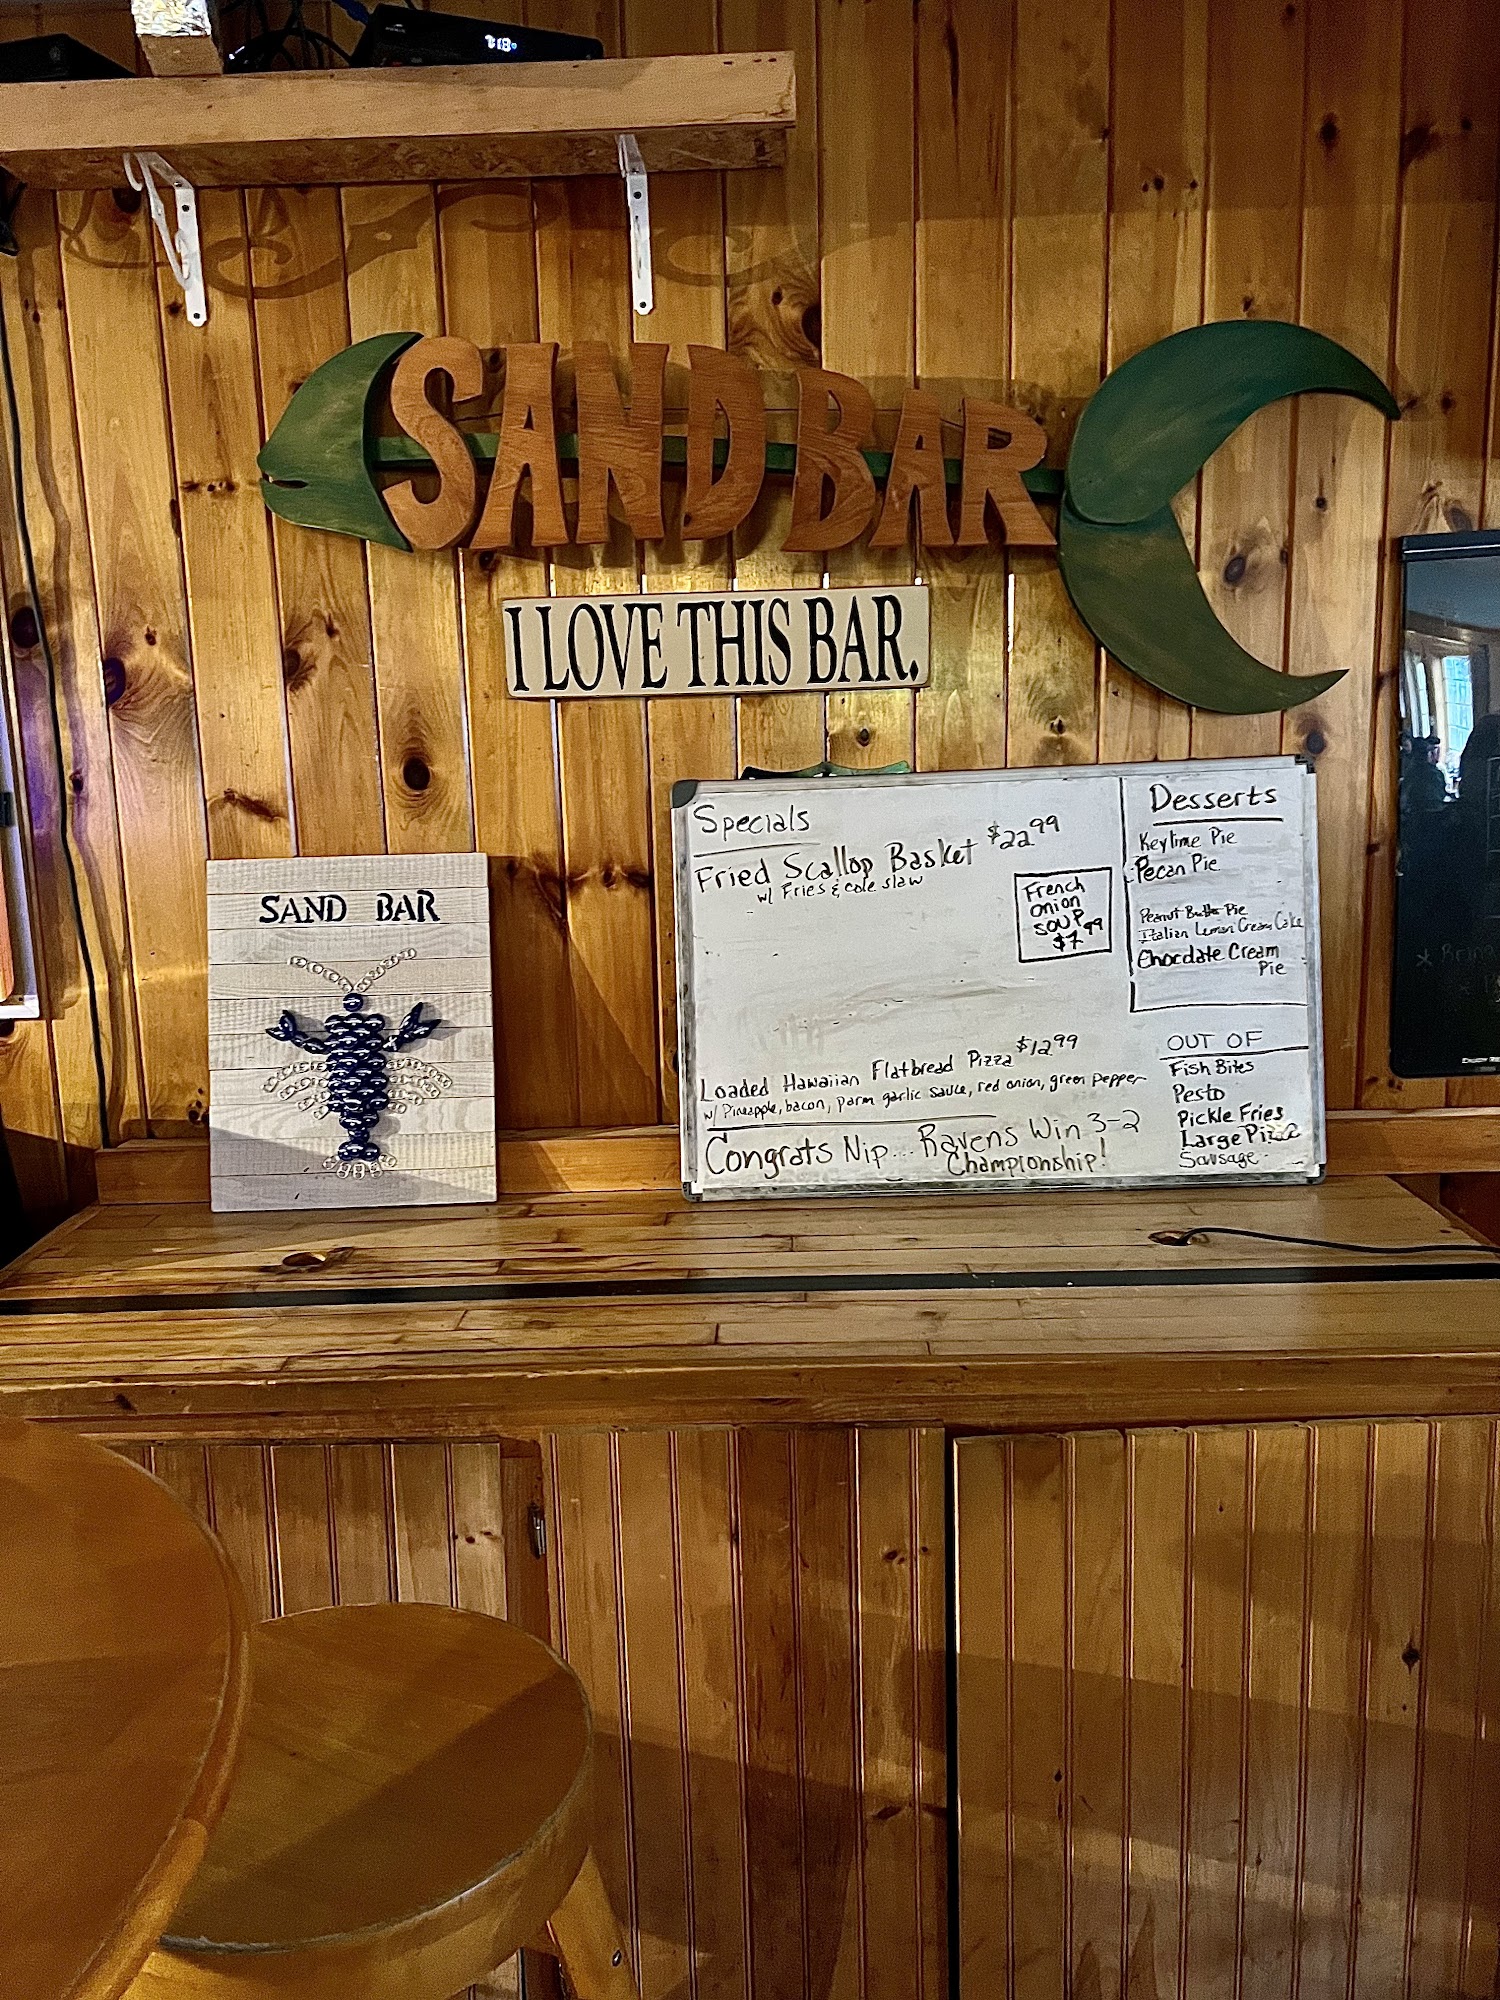 SAND BAR
I LOVE THIS BAR.
SAND BAR
Specials
Fried Scallop Basket $22.99
w/ Fries & cole slaw
French
onion
soup
$7.99
Loaded Hawaiian Flatbread Pizza $12.99
w/ Pineapple, bacon, parm garlic sauce, red onion, green pepper
Congrats Nip... Ravens Win 3-2
Championship!
Desserts
Keylime Pie
Pecan Pie
Peanut Butter Pie
Italian Lemon Cream Cake
Chocolate Cream
Pie
OUT OF
Fish Bites
Pesto
Pickle Fries
Large Pizza
Sausage